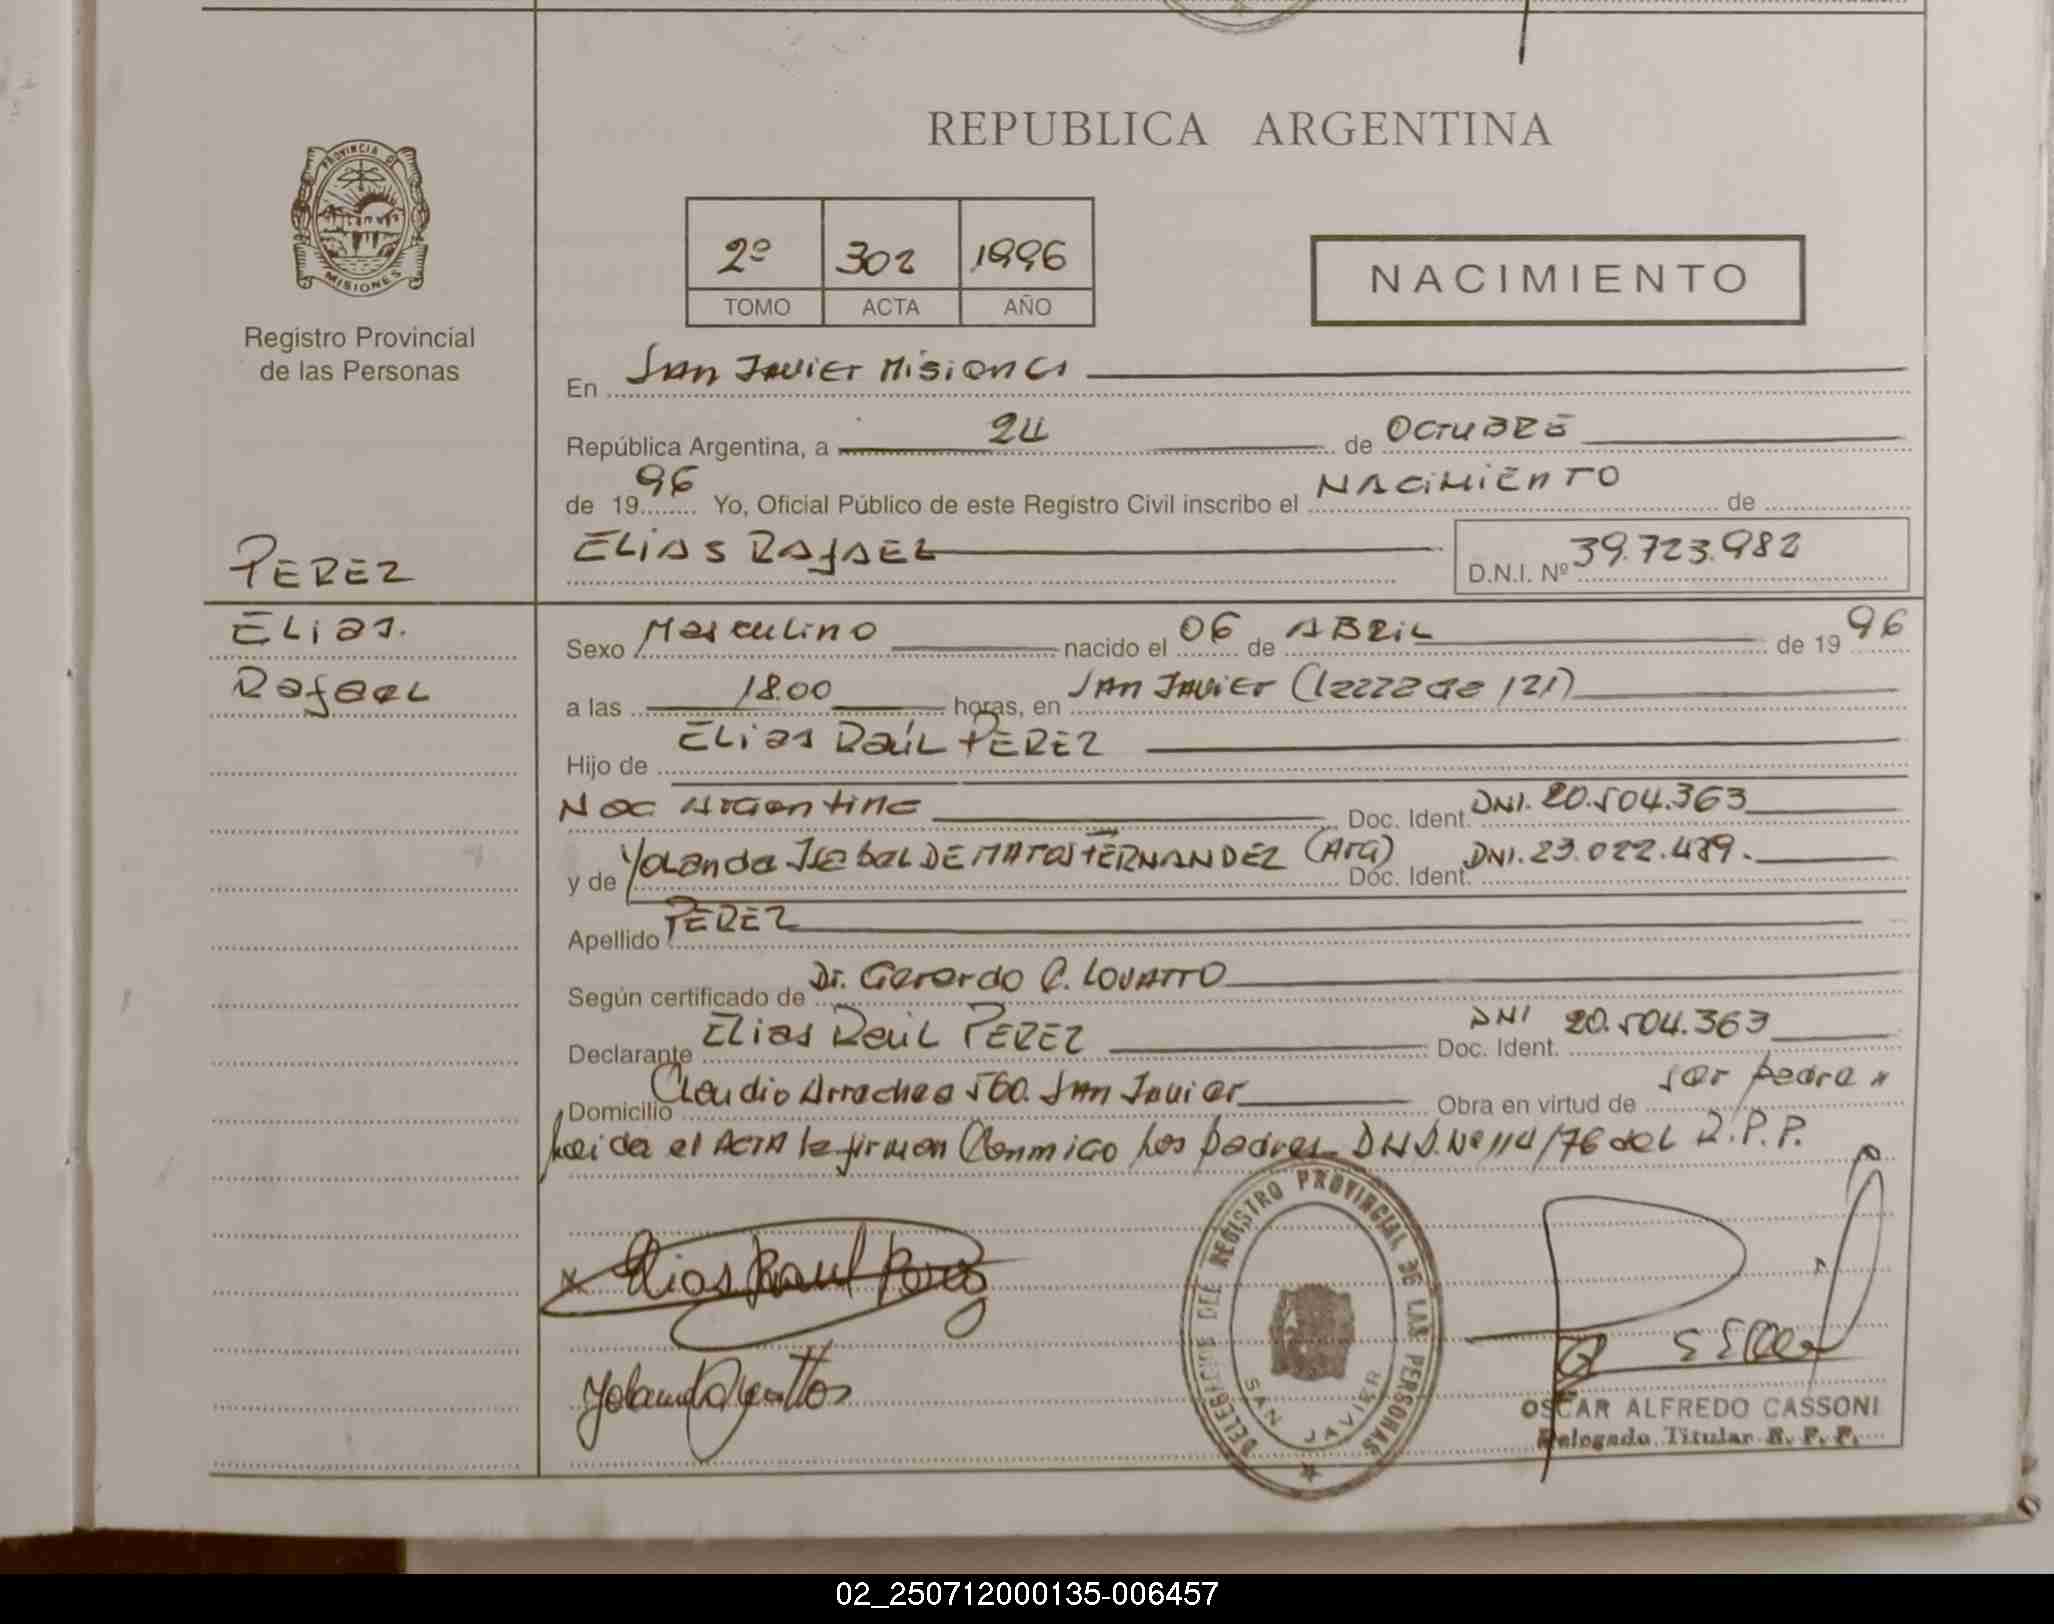 REPUBLICA ARGENTINA
PROVINCIA DE MISIONES
Registro Provincial
de las Personas
2º 302 1996
TOMO ACTA AÑO
NACIMIENTO
En San Javier Misiones
República Argentina, a 24 de Octubre
de 1996 Yo, Oficial Público de este Registro Civil inscribo el Nacimiento de
Elias Rafael D.N.I. Nº 39.723.982
PEREZ
Elias.
Rafael
Sexo Masculino nacido el 06 de Abril de 1996
a las 18.00 horas, en San Javier (121)
Hijo de Elias Raúl PEREZ
Nac Argentina Doc. Ident. DNI. 20.504.363
y de Yolanda Isabel DE MATOS FERNANDEZ (Arg) Doc. Ident. DNI. 23.022.489.
Apellido PEREZ
Según certificado de Dr. Gerardo C. LOVATTO
Declarante Elias Raúl PEREZ Doc. Ident. DNI 20.504.363
Domicilio Claudio Arrachea 560. San Javier Obra en virtud de ser padre "
Leida el ACTA la firman Conmigo Los padres Nº 114/76 del R.P.P.
Elias Raul Perez
Yolanda
DELEGACION DEL REGISTRO PROVINCIAL DE LAS PERSONAS
SAN JAVIER
OSCAR ALFREDO CASSONI
Delegado Titular R. P. P.
02_250712000135-006457